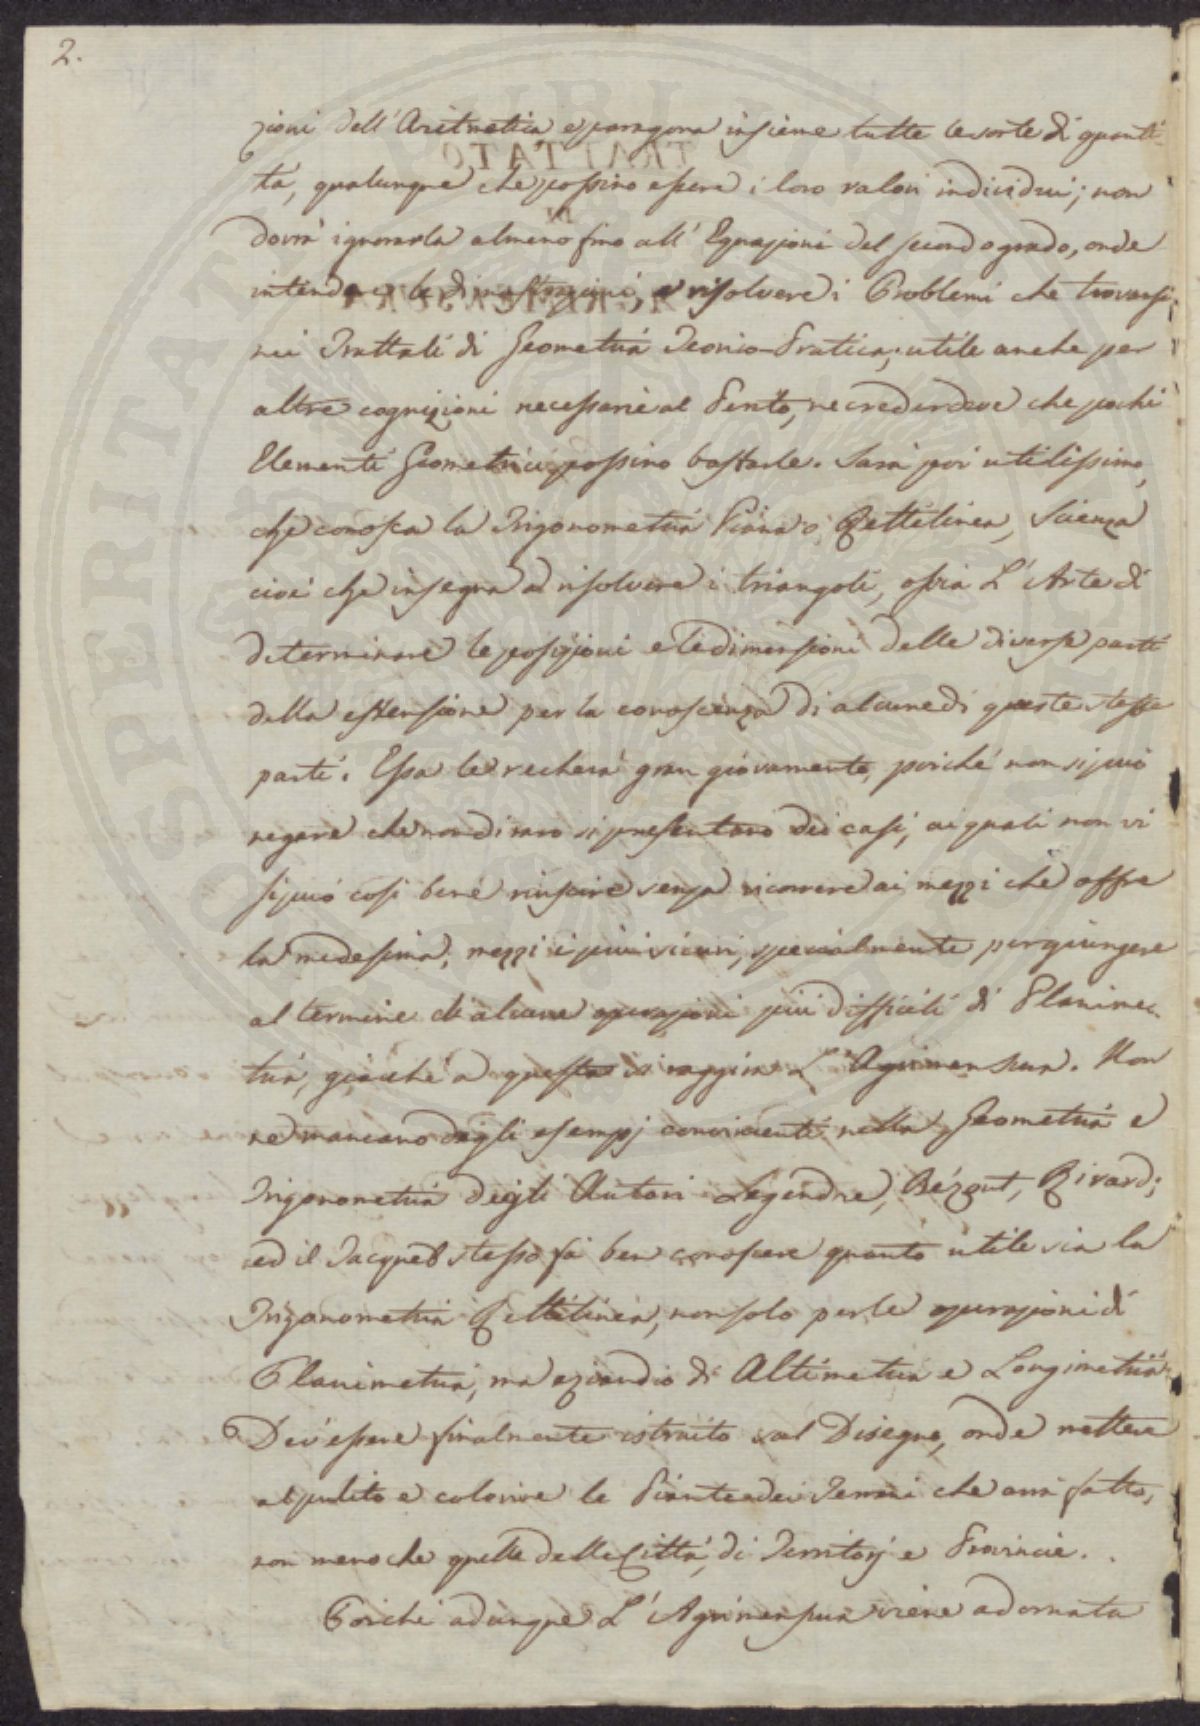 2.
zioni dell'Aritmetica e paragona insieme tutte le sorte di quanti-
tà, qualunque che possino essere i loro valori individui; non
dovrà ignorarla almeno fino all'Equazioni del secondo grado, onde
intendere le dimostrazioni, e risolvere i Problemi che trovansi
nei Trattati di Geometria Teorico-Pratica; utile anche per
altre cognizioni necessarie al Perito, ne creder deve che pochi
Elementi Geometrici possino bastarle. Sarà poi utilissimo,
che conosca la Trigonometria Piana o Rettilinea, Scienza
cioè che insegna a risolvere i triangoli, ossia L'Arte di
determinare le posizioni e le dimensioni delle diverse parti
dalla estensione per la conoscenza di alcune di queste stesse
parti. Essa le recherà gran giovamento, poiché non si può
negare che non di raro si presentano dei casi, ai quali non vi
si può così bene riuscire senza ricorrere ai mezzi che offre
la medesima, mezzi i più sicuri, specialmente per giungere
al termine di alcune operazioni più difficili di Planime-
tria, giacché a questa si raggira L'Agrimensura. Non
ne mancano degli esempj convincenti nella Geometria e
Trigonometria degli Autori Legendre, Bézout, Rivard;
ed il Jacquet stesso fa ben conoscere quanto utile sia la
Trigonometria Rettilinea, non solo per le operazioni di
Planimetria, ma eziandio di Altimetria e Longimetria.
Dev'essere finalmente istruito sul Disegno, onde mettere
al pulito e colorire le Piante dei Terreni che avrà fatto,
non meno che quelle delle Città, di Territorj e Provincie.
Poiché adunque L'Agrimensura viene adornata
SPERITATI PUBLICAE